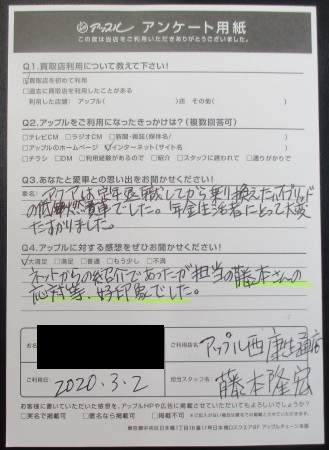 アップル アンケート用紙
この度は当店をご利用いただきありがとうございました。
Q1.買取店利用について教えて下さい!
☑買取店を初めて利用
□過去に買取店を利用したことがある
利用した店舗: アップル( )店 その他( )
Q2.アップルをご利用になったきっかけは?(複数回答可)
□テレビCM □ラジオCM □新聞・雑誌(媒体名/ )
□アップルのホームページ ☑インターネット(サイト名 )
□チラシ □DM □利用経験があるので □紹介 □スタッフに誘われて □通りがかりで
Q3.あなたと愛車との思い出をお聞かせください!
車名: アクアは定年退職してから乗り換えたハイブリッド
の低燃費車でした。年金生活者にとって大変
たすかりました。
Q4.アップルに対する感想をぜひお聞かせください!
☑大満足 □満足 □普通 □もう少し □不満
ネットからの紹介であったが担当の藤本さんの
応対等、好印象でした。
お名
ご利用店名 アップル西康生通店
ご利用日: 2020.3.2
担当スタッフ名: 藤本隆宏
お客様に書いていただいた感想を、アップルHPや広告に掲載させていただいてもよろしいでしょうか?
□実名で掲載可 □匿名なら掲載可 □掲載不可